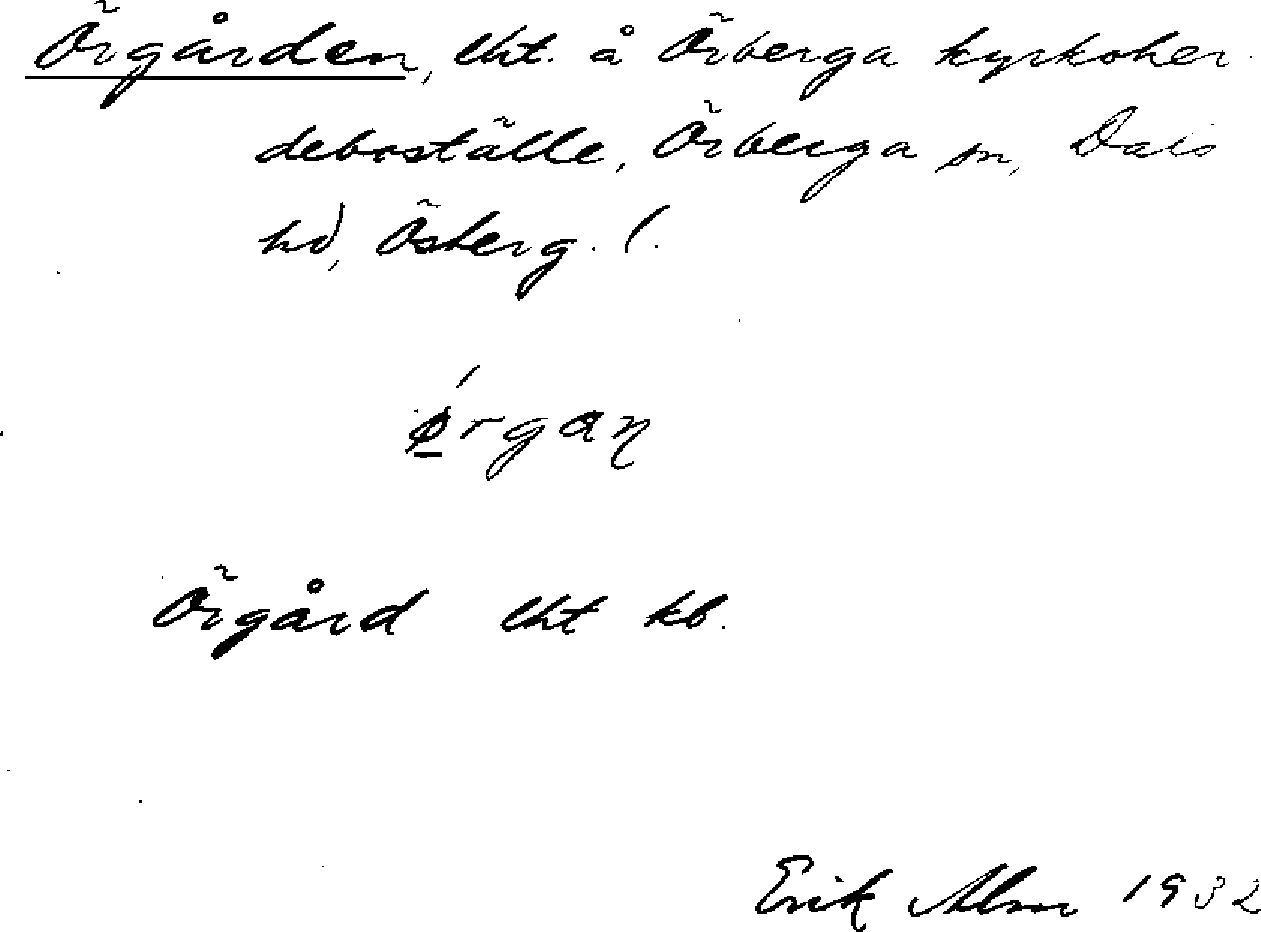 Örgården, lht. å Örberga kyrkoher-
deboställe, Örberga sn, Dals
hd, Österg. l.
ǿ̱rgaꞃ
Örgård lht kb.
Erik Alm 1932